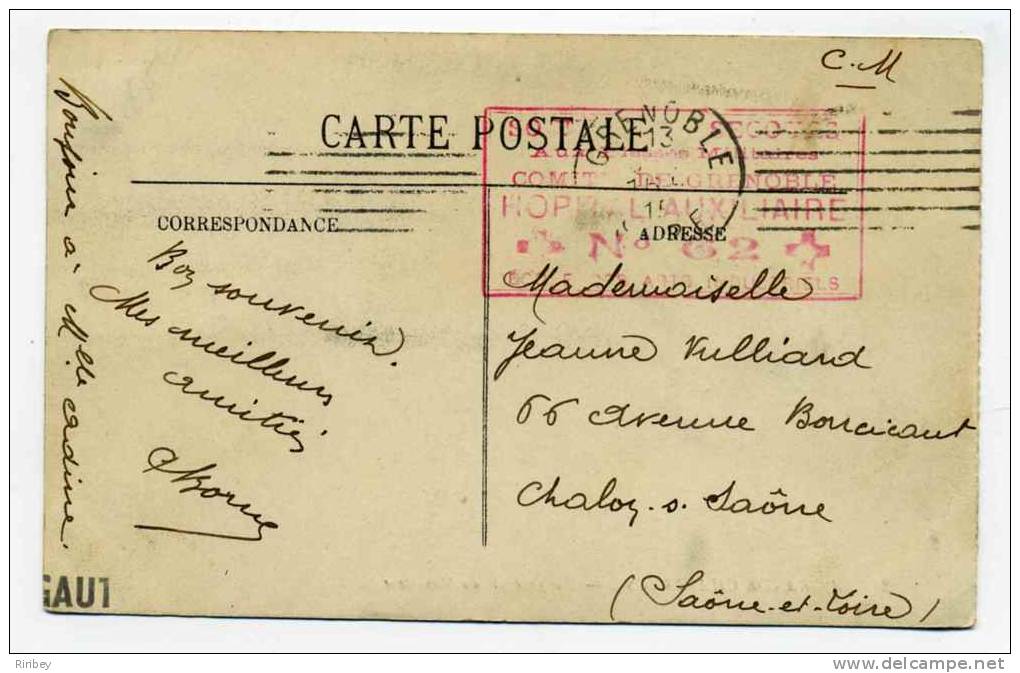 C.M
CARTE POSTALE
GRENOBLE
13
15
Aux Blessés Militaires
COMITÉ DE GRENOBLE
HOPITAL AUXILIAIRE
No 62
CORRESPONDANCE
ADRESSE
Bonjour à Mlle
Bon souvenir.
Mes meilleurs
amitiés
Mademoiselle
Jeanne Vulliard
66 Avenue Boucicaut
Chalon. s. Saône
(Saône-et-Loire)
GAUT
Riribey
www.delcampe.net